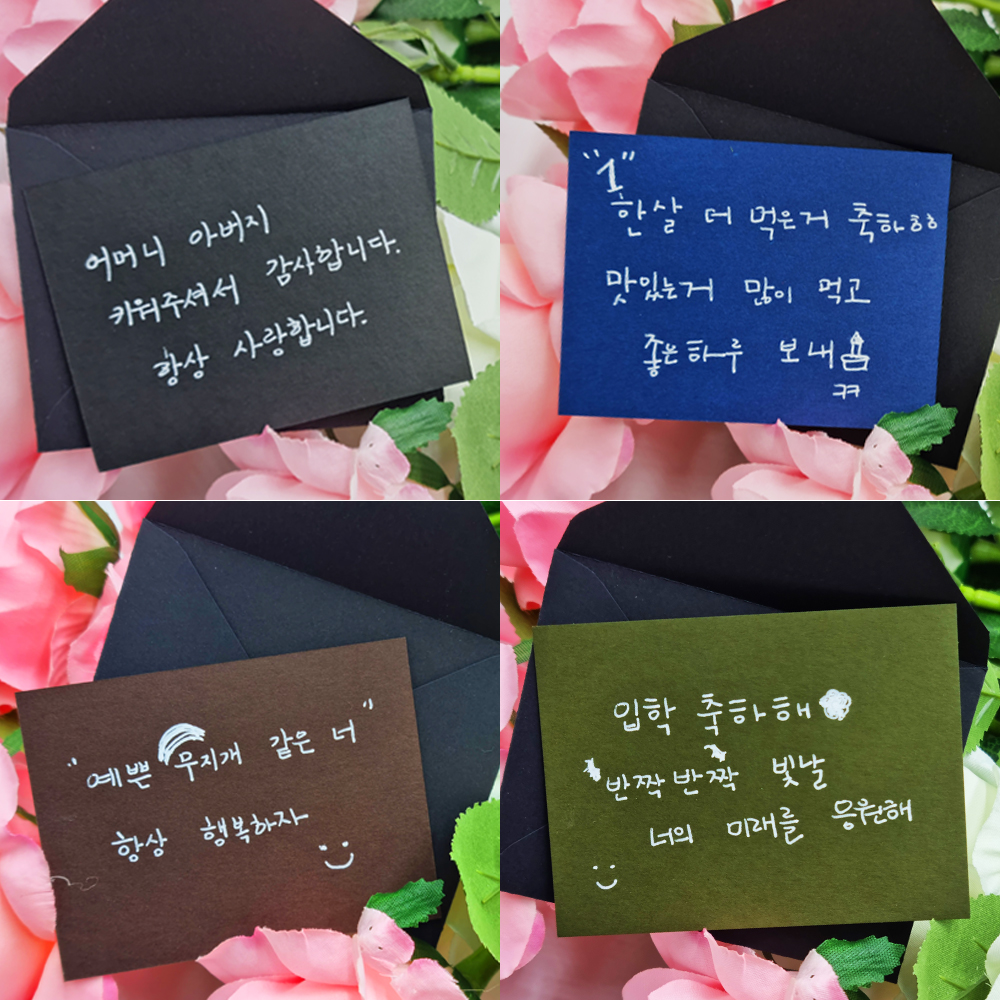 어머니 아버지
키워주셔서 감사합니다.
항상 사랑합니다.
"1"
한살 더 먹은거 축하ㅎㅎ
맛있는거 많이 먹고
좋은하루 보내
ㅋㅋ
"예쁜 무지개 같은 너"
항상 행복하자
입학 축하해
반짝반짝 빛날
너의 미래를 응원해